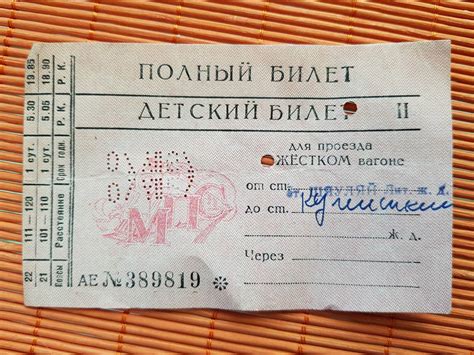 ПОЛНЫЙ БИЛЕТ
ДЕТСКИЙ БИЛЕТ II
для проезда
ЖЁСТКОМ вагоне
от ст. ст. ШЯУЛЯЙ Лит. ж. д.
до ст.
Ж. Д.
Через
АЕ № 389819 *
МПС
19.85 18.90
Р. К. Р. К.
5.30 5.05
Р. К. Р. К.
1 сут. 1 сут.
Срок годн.
111—120 101—110
Расстояние
22 21
Поясы